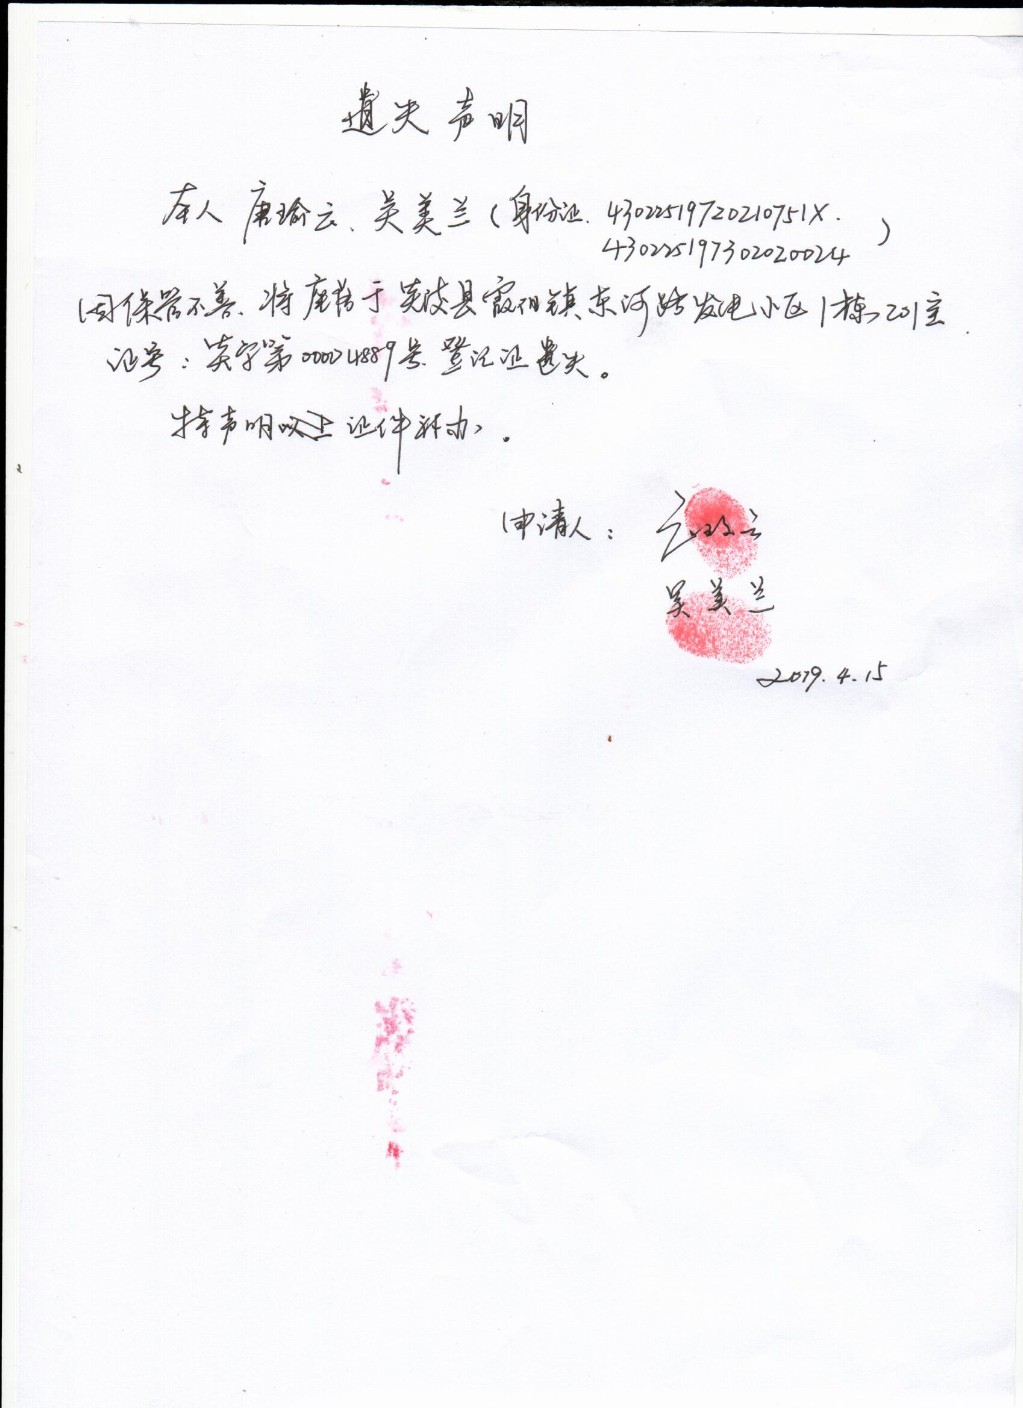 遗失声明
本人 唐瑜云、吴美兰(身份证.43022519720210751X.
430225197302020024)
因保管不善.将座落于炎陵县霞阳镇东河路发电小区1栋201室
证号:炎字第00024889号.登记证遗失。
特声明以上证件补办。
申请人:
吴美兰
2019.4.15